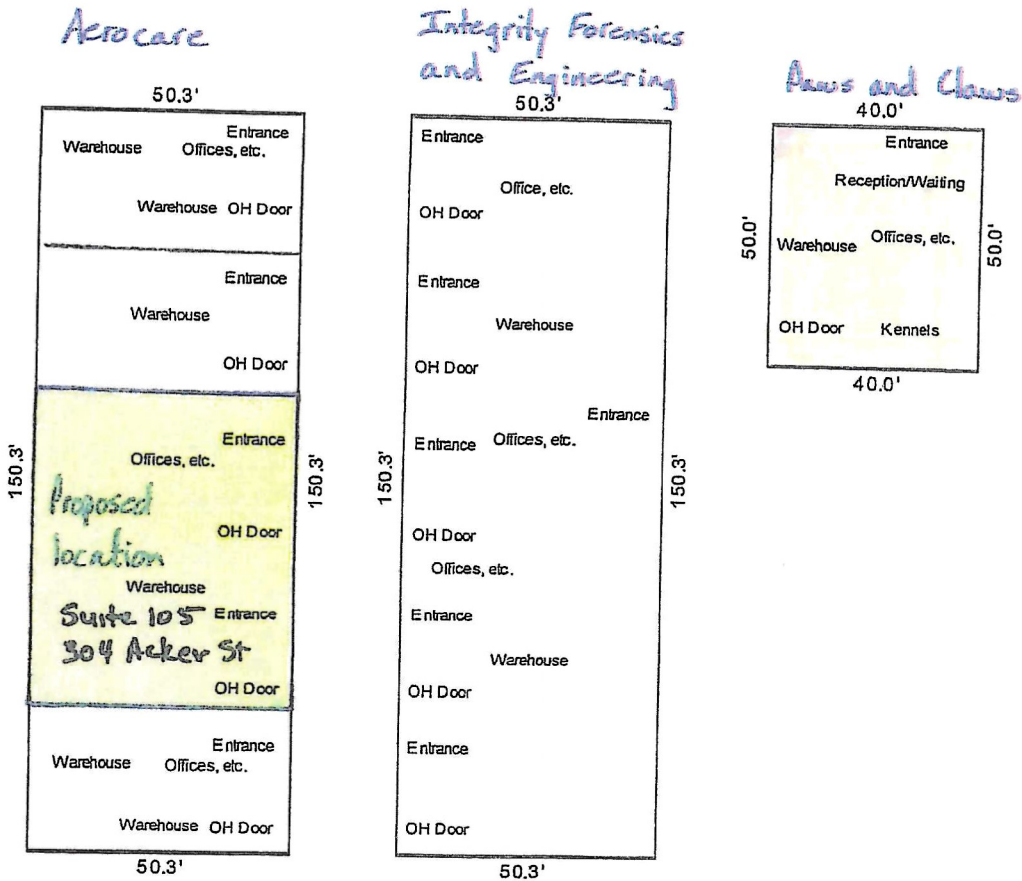 Aerocare
50.3'
Entrance
Warehouse Offices, etc.
Warehouse OH Door
Entrance
Warehouse
OH Door
150.3'
150.3'
Entrance
Offices, etc.
Proposed
location
OH Door
Warehouse
Suite 105 Entrance
304 Acker St
OH Door
Entrance
Warehouse Offices, etc.
Warehouse OH Door
50.3'
Integrity Forensics
and Engineering
50.3'
Entrance
Office, etc.
OH Door
Entrance
Warehouse
OH Door
Entrance
Entrance Offices, etc.
150.3'
150.3'
OH Door
Offices, etc.
Entrance
Warehouse
OH Door
Entrance
OH Door
50.3'
Paws and Claws
40.0'
Entrance
Reception/Waiting
50.0'
Warehouse Offices, etc.
50.0'
OH Door Kennels
40.0'